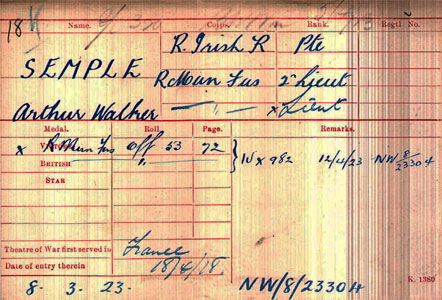 Name. Corps. Rank. Regtl. No.
R. Irish R Pte
SEMPLE R. Mun Fus 2nd Lieut
Arthur Walker " x Lieut
Medal. Roll. Page. Remarks.
x Victory R Mun Fus Off 53 72 IV x 982 12/4/23 NW 8/23304
British "
Star
Theatre of War first served in France
Date of entry therein 18/4/18. K. 1380
8. 3. 23. NW/8/23304